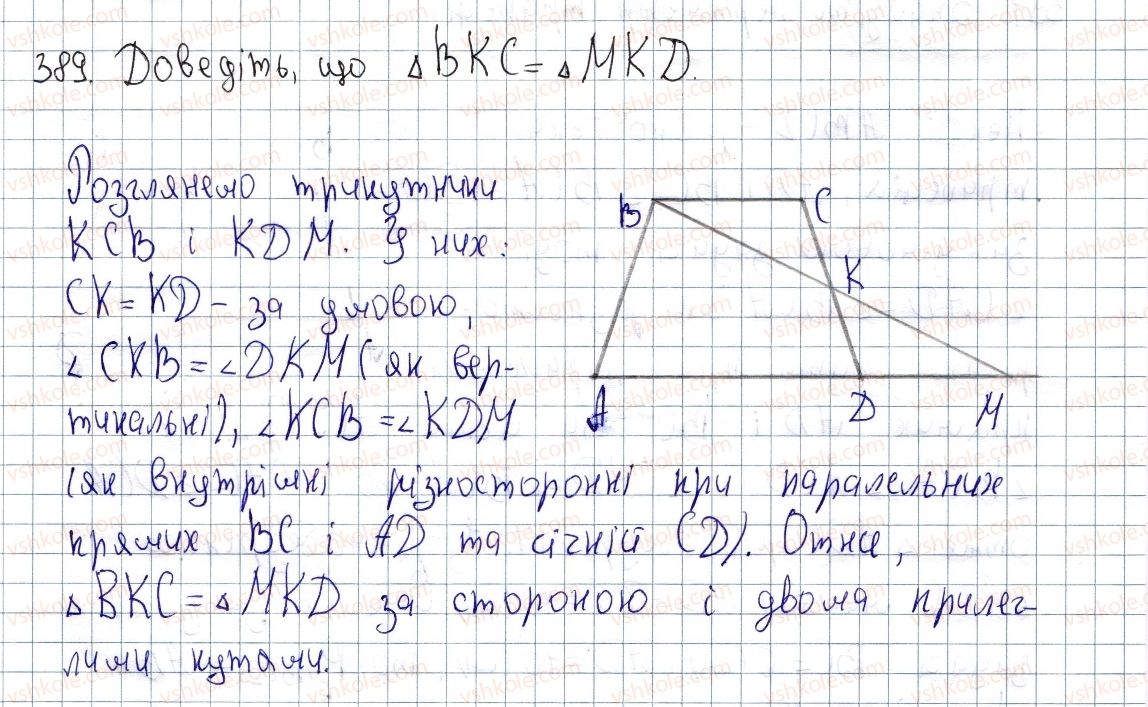 389. Доведіть, що △BKC = △MKD.
Розглянемо трикутники
KCB і KDM. У них:
CK = KD – за умовою,
∠CKB = ∠DKM (як вер-
тикальні), ∠KCB = ∠KDM
(як внутрішні різносторонні при паралельних
прямих BC і AD та січній CD). Отже,
△BKC = △MKD за стороною і двома прилег-
лими кутами.
B C
K
A D M
vshkole.com